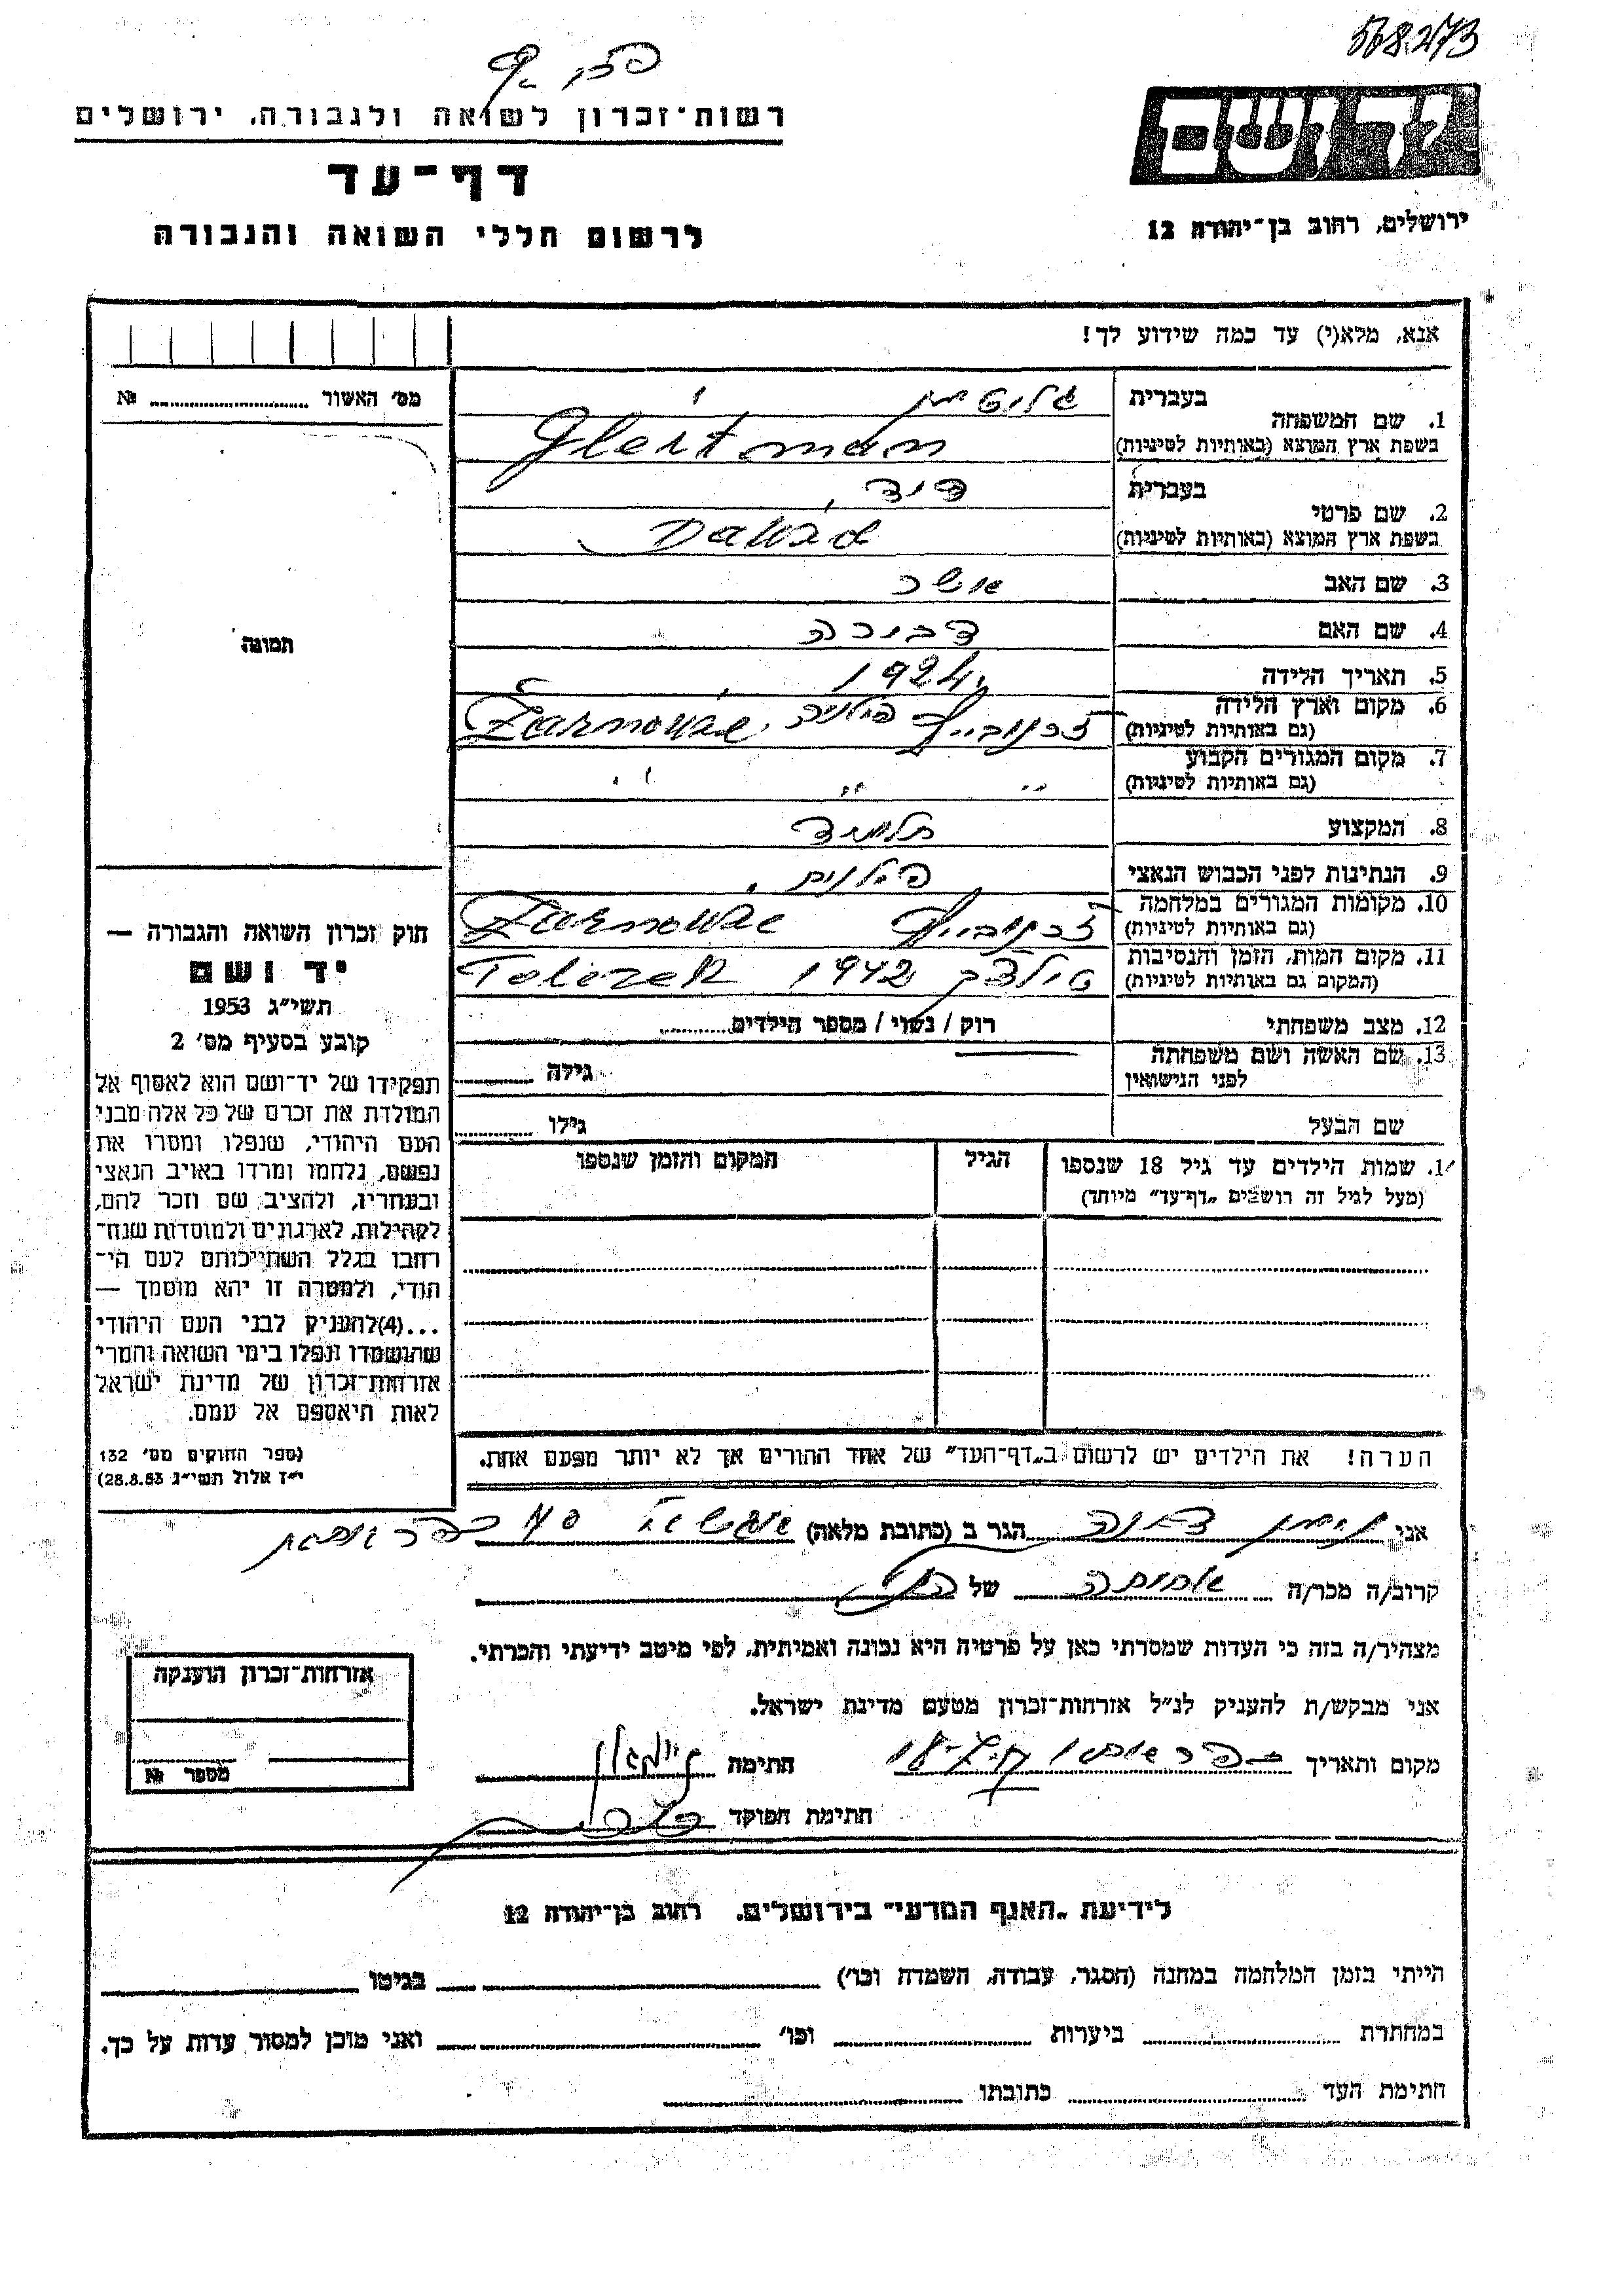 568273
רשות־זכרון לשואה ולגבורה, ירושלים
יד ושם
דף־עד
לרשום חללי השואה והגבורה
ירושלים, רחוב בן־יהודה 12
אנא, מלא(י) עד כמה שידוע לך!
מס׳ האשור № 
1. שם המשפחה
בעברית גליטמן
בשפת ארץ המוצא (באותיות לטיניות) Gleitman
2. שם פרטי
בעברית דוד
בשפת ארץ המוצא (באותיות לטיניות) Dawid
3. שם האב אשר
4. שם האם דבורה
5. תאריך הלידה 1924
6. מקום וארץ הלידה
(גם באותיות לטיניות) פולניה Żarnowiec
7. מקום המגורים הקבוע
(גם באותיות לטיניות) " " "
8. המקצוע תלמיד
9. הנתינות לפני הכבוש הנאצי פולנית
10. מקומות המגורים במלחמה
(גם באותיות לטיניות) Żarnowiec
11. מקום המות, הזמן והנסיבות
(המקום גם באותיות לטיניות) 1942
12. מצב משפחתי רוק / נשוי / מספר הילדים
13. שם האשה ושם משפחתה
לפני הנישואין גילה
שם הבעל גילו
1. שמות הילדים עד גיל 18 שנספו הגיל המקום והזמן שנספו
(מעל לגיל זה רושמים „דף־עד" מיוחד)
הערה! את הילדים יש לרשום ב„דף־העד" של אחד ההורים אך לא יותר מפעם אחת.
תמונה
חוק זכרון השואה והגבורה —
יד ושם
תשי״ג 1953
קובע בסעיף מס׳ 2
תפקידו של יד־ושם הוא לאסוף אל
המולדת את זכרם של כל אלה מבני
העם היהודי, שנפלו ומסרו את
נפשם, נלחמו ומרדו באויב הנאצי
ובעוזריו, ולהציב שם וזכר להם,
לקהילות, לארגונים ולמוסדות שנח־
רבו בגלל השתייכותם לעם הי־
הודי, ולמטרה זו יהא מוסמך —
...(4)להעניק לבני העם היהודי
שהושמדו ונפלו בימי השואה והמרי
אזרחות־זכרון של מדינת ישראל
לאות היאספם אל עמם.
(ספר החוקים מס׳ 132
י״ז אלול תשי״ג 28.8.53)
אני הגר ב (כתובת מלאה)
קרוב/ה מכר/ה של
מצהיר/ה בזה כי העדות שמסרתי כאן על פרטיה היא נכונה ואמיתית, לפי מיטב ידיעתי והכרתי.
אני מבקש/ת להעניק לנ״ל אזרחות־זכרון מטעם מדינת ישראל.
מקום ותאריך חתימה
חתימת הפוקד
אזרחות־זכרון הוענקה
מספר №
לידיעת „האגף המדעי" בירושלים, רחוב בן־יהודה 12
הייתי בזמן המלחמה במחנה (הסגר, עבודה, השמדה וכו׳) בגיטו
במחתרת ביערות וכו׳ ואני מוכן למסור עדות על כך.
חתימת העד כתובתו